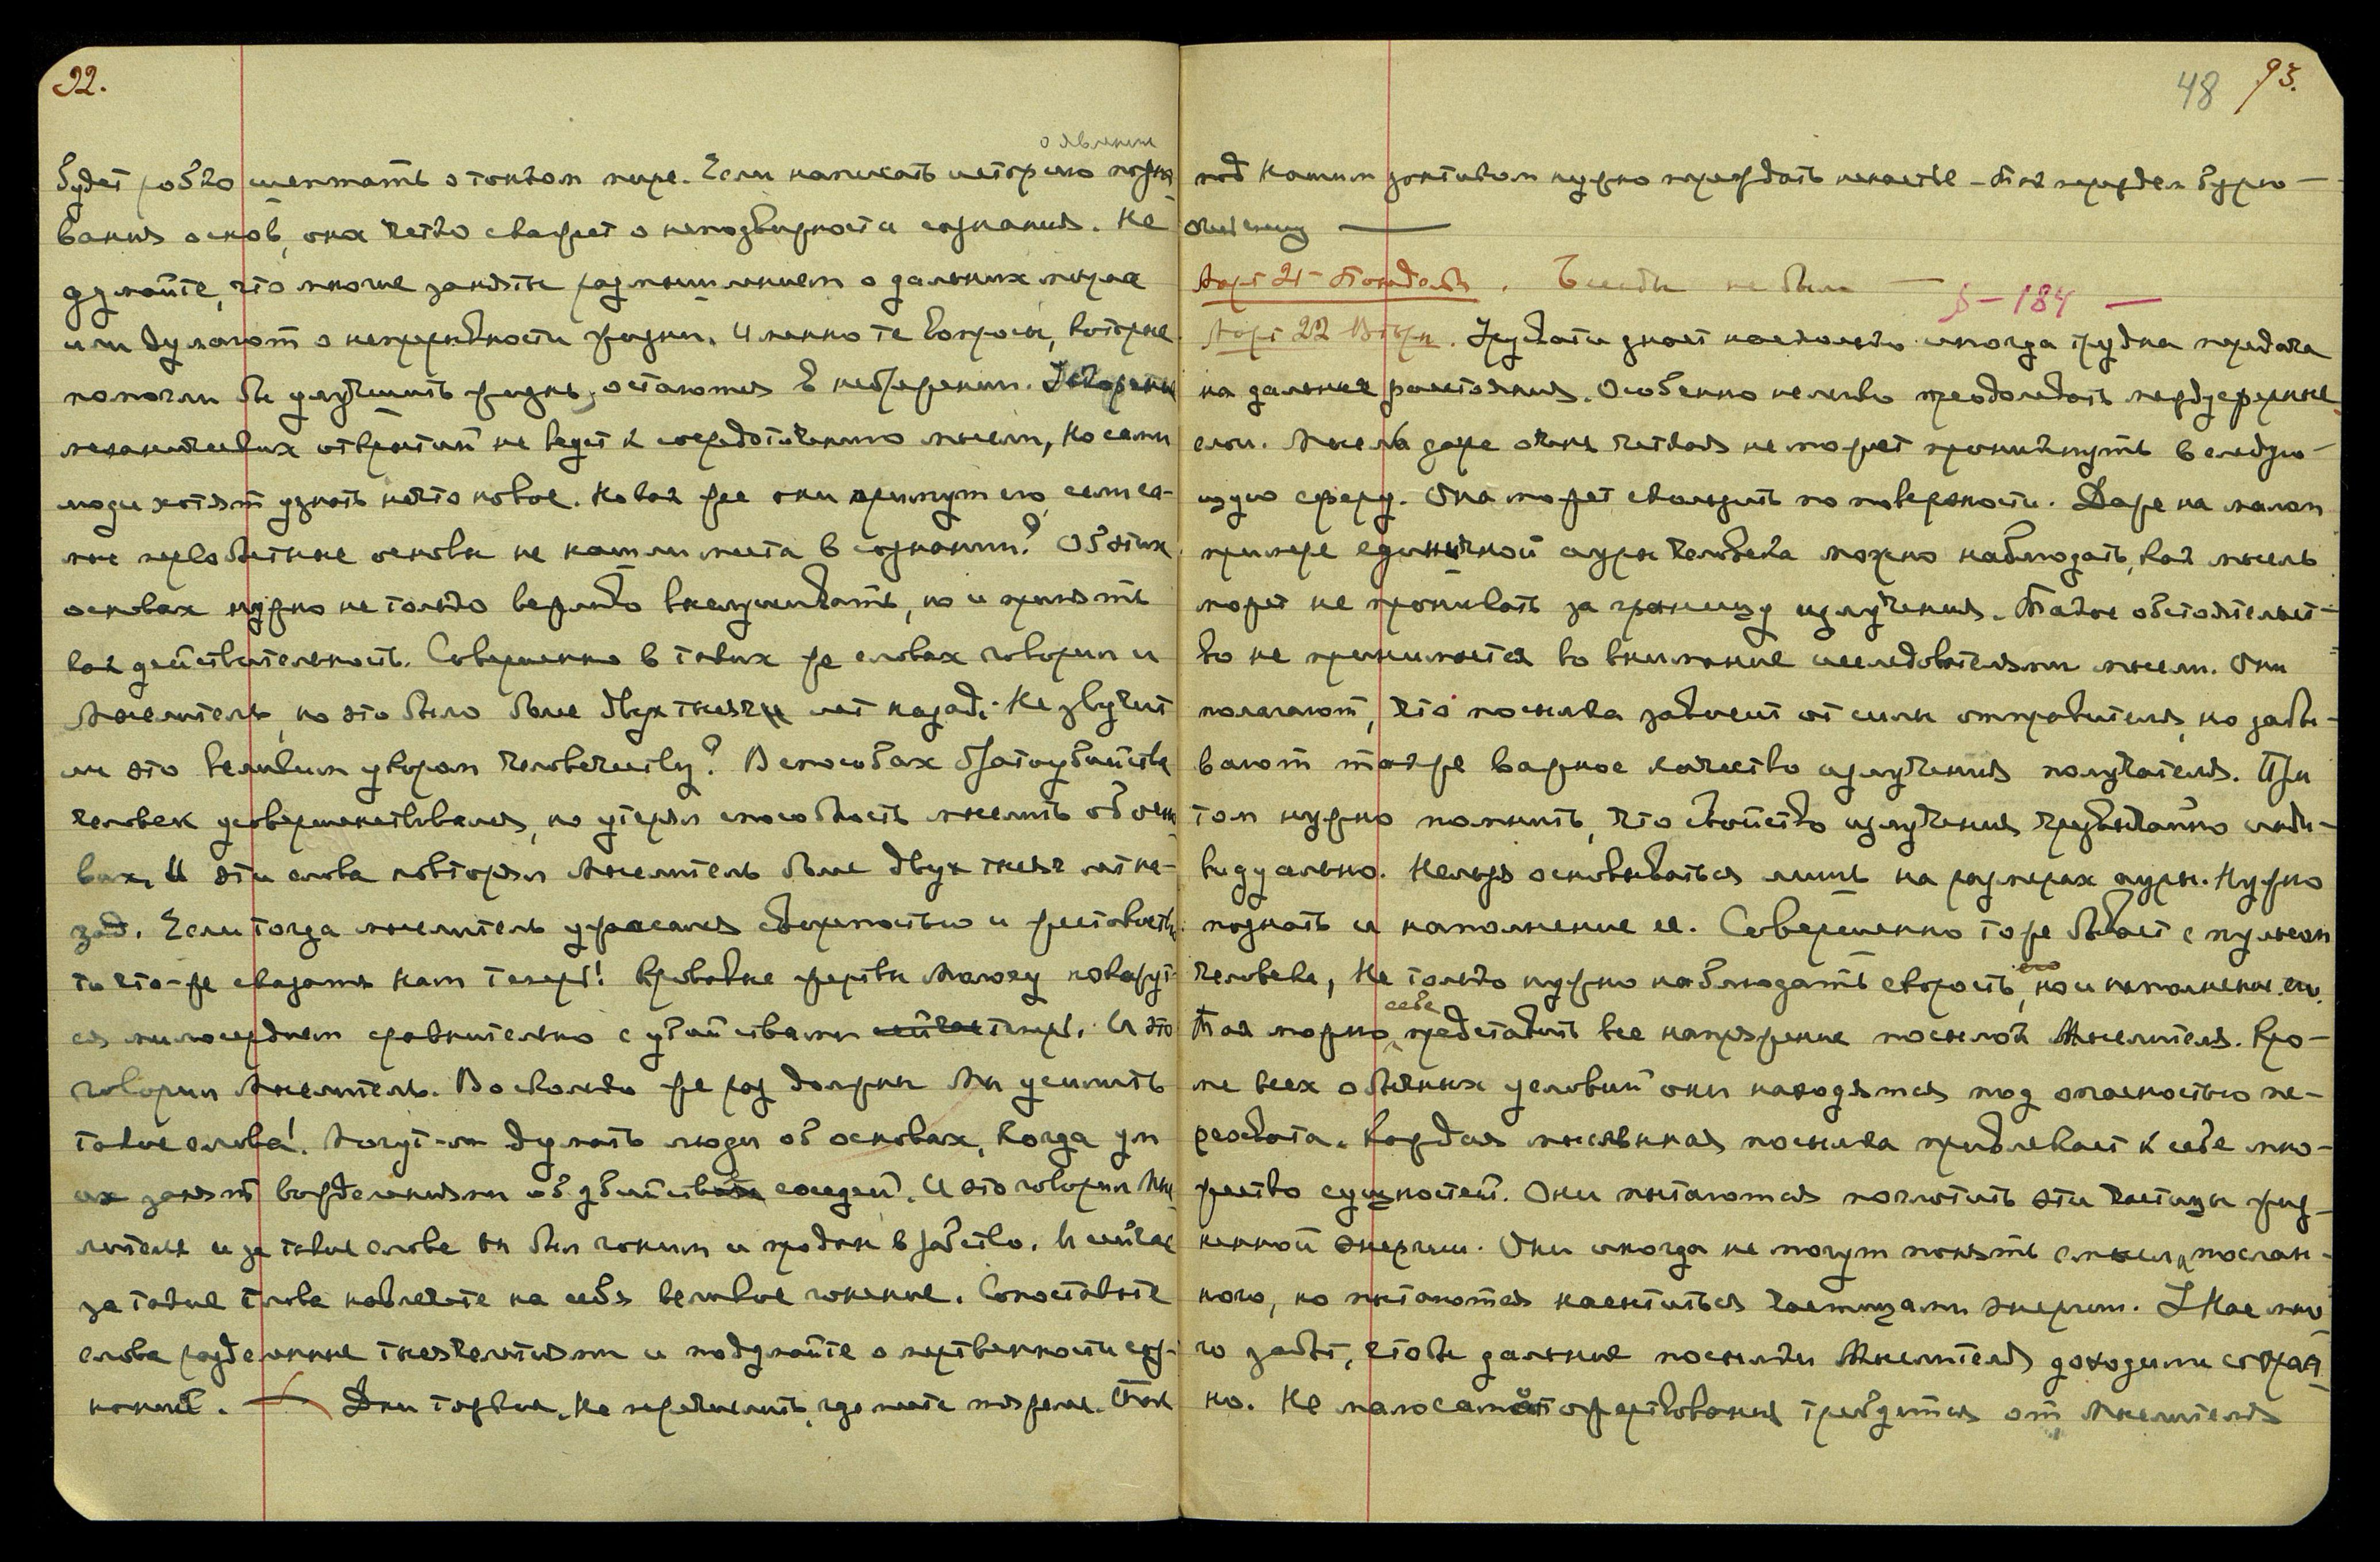 92.
о явлении
будет робко шептать о тонком мире. Если написать историю позна-
вания основ, она четко скажет о неподвижности сознания. Не
думайте, что многие заняты размышлением о дальних мирах
или думают о непрерывности жизни. Именно те вопросы, которые
помогли бы улучшить жизнь, остаются в небрежении. Ускорение
механических открытий не ведет к сосредоточению мысли, но если
люди хотят узнать нечто новое. Но как же они примут его, если са-
мые первобытные основы не нашли места в сознании? Об этих
основах нужно не только вежливо выслушивать, но и принять
как действительность. Совершенно в таких же словах говорил и
Мыслитель, но это было более двух тысяч лет назад. Не звучит
ли это великим укором человечеству? В способах братоубийства
человек усовершенствовался, но утерял способность мыслить об осно-
вах. И эти слова повторял Мыслитель более двух тысяч лет на-
зад. Если тогда мыслитель ужасался свирепостью и жестокостью
то что-же сказать нам теперь! Кровавые жертвы Молоху покажут-
ся милосердием сравнительно с убийствами сейчас теперь. И это
говорил Мыслитель. Во сколько же раз должны мы усилить
такие слова! Могут-ли думать люди об основах, когда ум
их занят вожделениями об убийствах соседей. И это говорил Мыс-
литель и за такие слова он был гоним и продан в рабство. И сейчас
за такие слова навлечете на себя великое гонение. Сопоставьте
слова разделенные тысячелетиями и подумайте о мертвенности соз-
наний. — Дни тяжкие. Не перечислить, где места тяжелые. Так
48 93.
под Нашим зонтиком нужно переждать ненастье – так придем бурно-
очищению —
Март 21 – Понедельн. Беседы не было — § – 184 —
Март 22 Вторн. Урусвати знает насколько иногда трудна передача
на дальние расстояния. Особенно нелегко преодолевать междусферные
слои. Мысль даже очень четкая не может проникнуть в следую-
щую сферу. Она может скользить по поверхности. Даже на малом
примере единичной ауры человека можно наблюдать, как мысль
может не проникать за границу излучения. Такое обстоятельст-
во не принимается во внимание исследователями мысли. Они
полагают, что посылка зависит от силы отправителя, но забы-
вают также важное качество излучения получателя. При
том нужно помнить, что свойство излучения чрезвычайно инди-
видуально. Нельзя основываться лишь на размерах ауры. Нужно
познать и наполнение ее. Совершенно то же бывает с пульсом
человека, Не только нужно наблюдать скорость его, но и наполнение его.
Так можно себе представить все напряжение посылок Мыслителя. Кро-
ме всех обычных условий они находятся под опасностью пе-
рехвата. Каждая мысленная посылка привлекает к себе мно-
жество сущностей. Они пытаются поглотить эти частицы жиз-
ненной энергии. Они иногда не могут понять смысла послан-
ного, но пытаются насытиться частицами энергии. У Нас мно-
го забот, чтобы дальние посылки Мыслителя доходили сохран-
но. Не мало самопожертвования требуется от Мыслителя